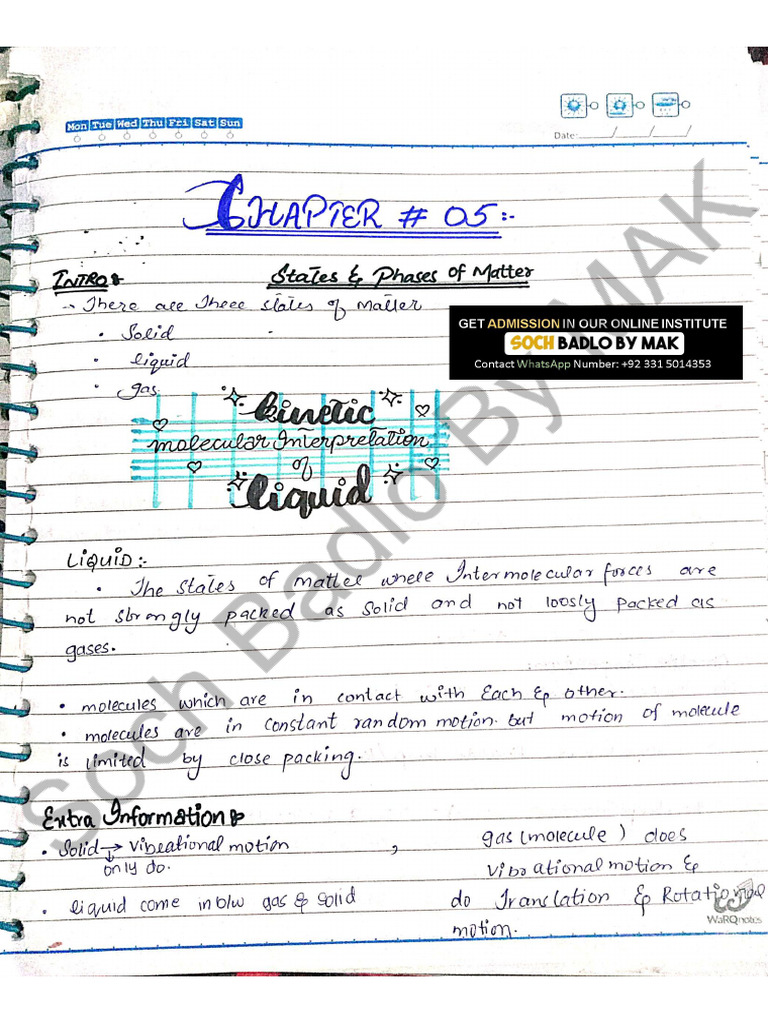 Mon Tue Wed Thu Fri Sat Sun
Date:
CHAPTER # 05:-
INTRO:
States & Phases of Matter
→ There are three states of Matter
• Solid
• liquid
• gas
GET ADMISSION IN OUR ONLINE INSTITUTE
SOCH BADLO BY MAK
Contact WhatsApp Number: +92 331 5014353
kinetic
molecular Interpretation
of
liquid
LIQUID:-
• The states of matter where Intermolecular forces are
not strongly packed as solid and not loosly packed as
gases.
• molecules which are in contact with Each & other.
• molecules are in constant random motion. but motion of molecule
is limited by close packing.
Extra Information:
• Solid → vibrational motion ,
↓
only do.
gas (molecule) does
vibrational motion &
do Translation & Rotational
motion.
• liquid come in b/w gas & solid
WaRQnotes
Soch Badlo By MAK